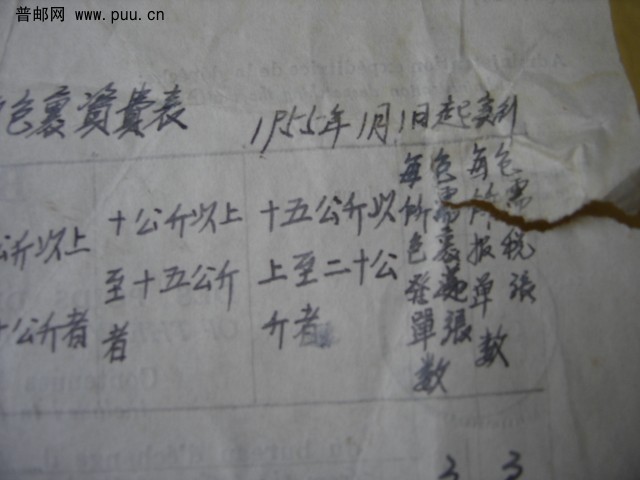 普邮网 www.puu.cn
包裹資費表 1955年1月1日起
公斤以上
十公斤者
十公斤以上
至十五公斤
者
十五公斤以
上至二十公
斤者
每包所需包裹發遞單張数
每包所需报税單張数
du bureau d'échange d
3 3